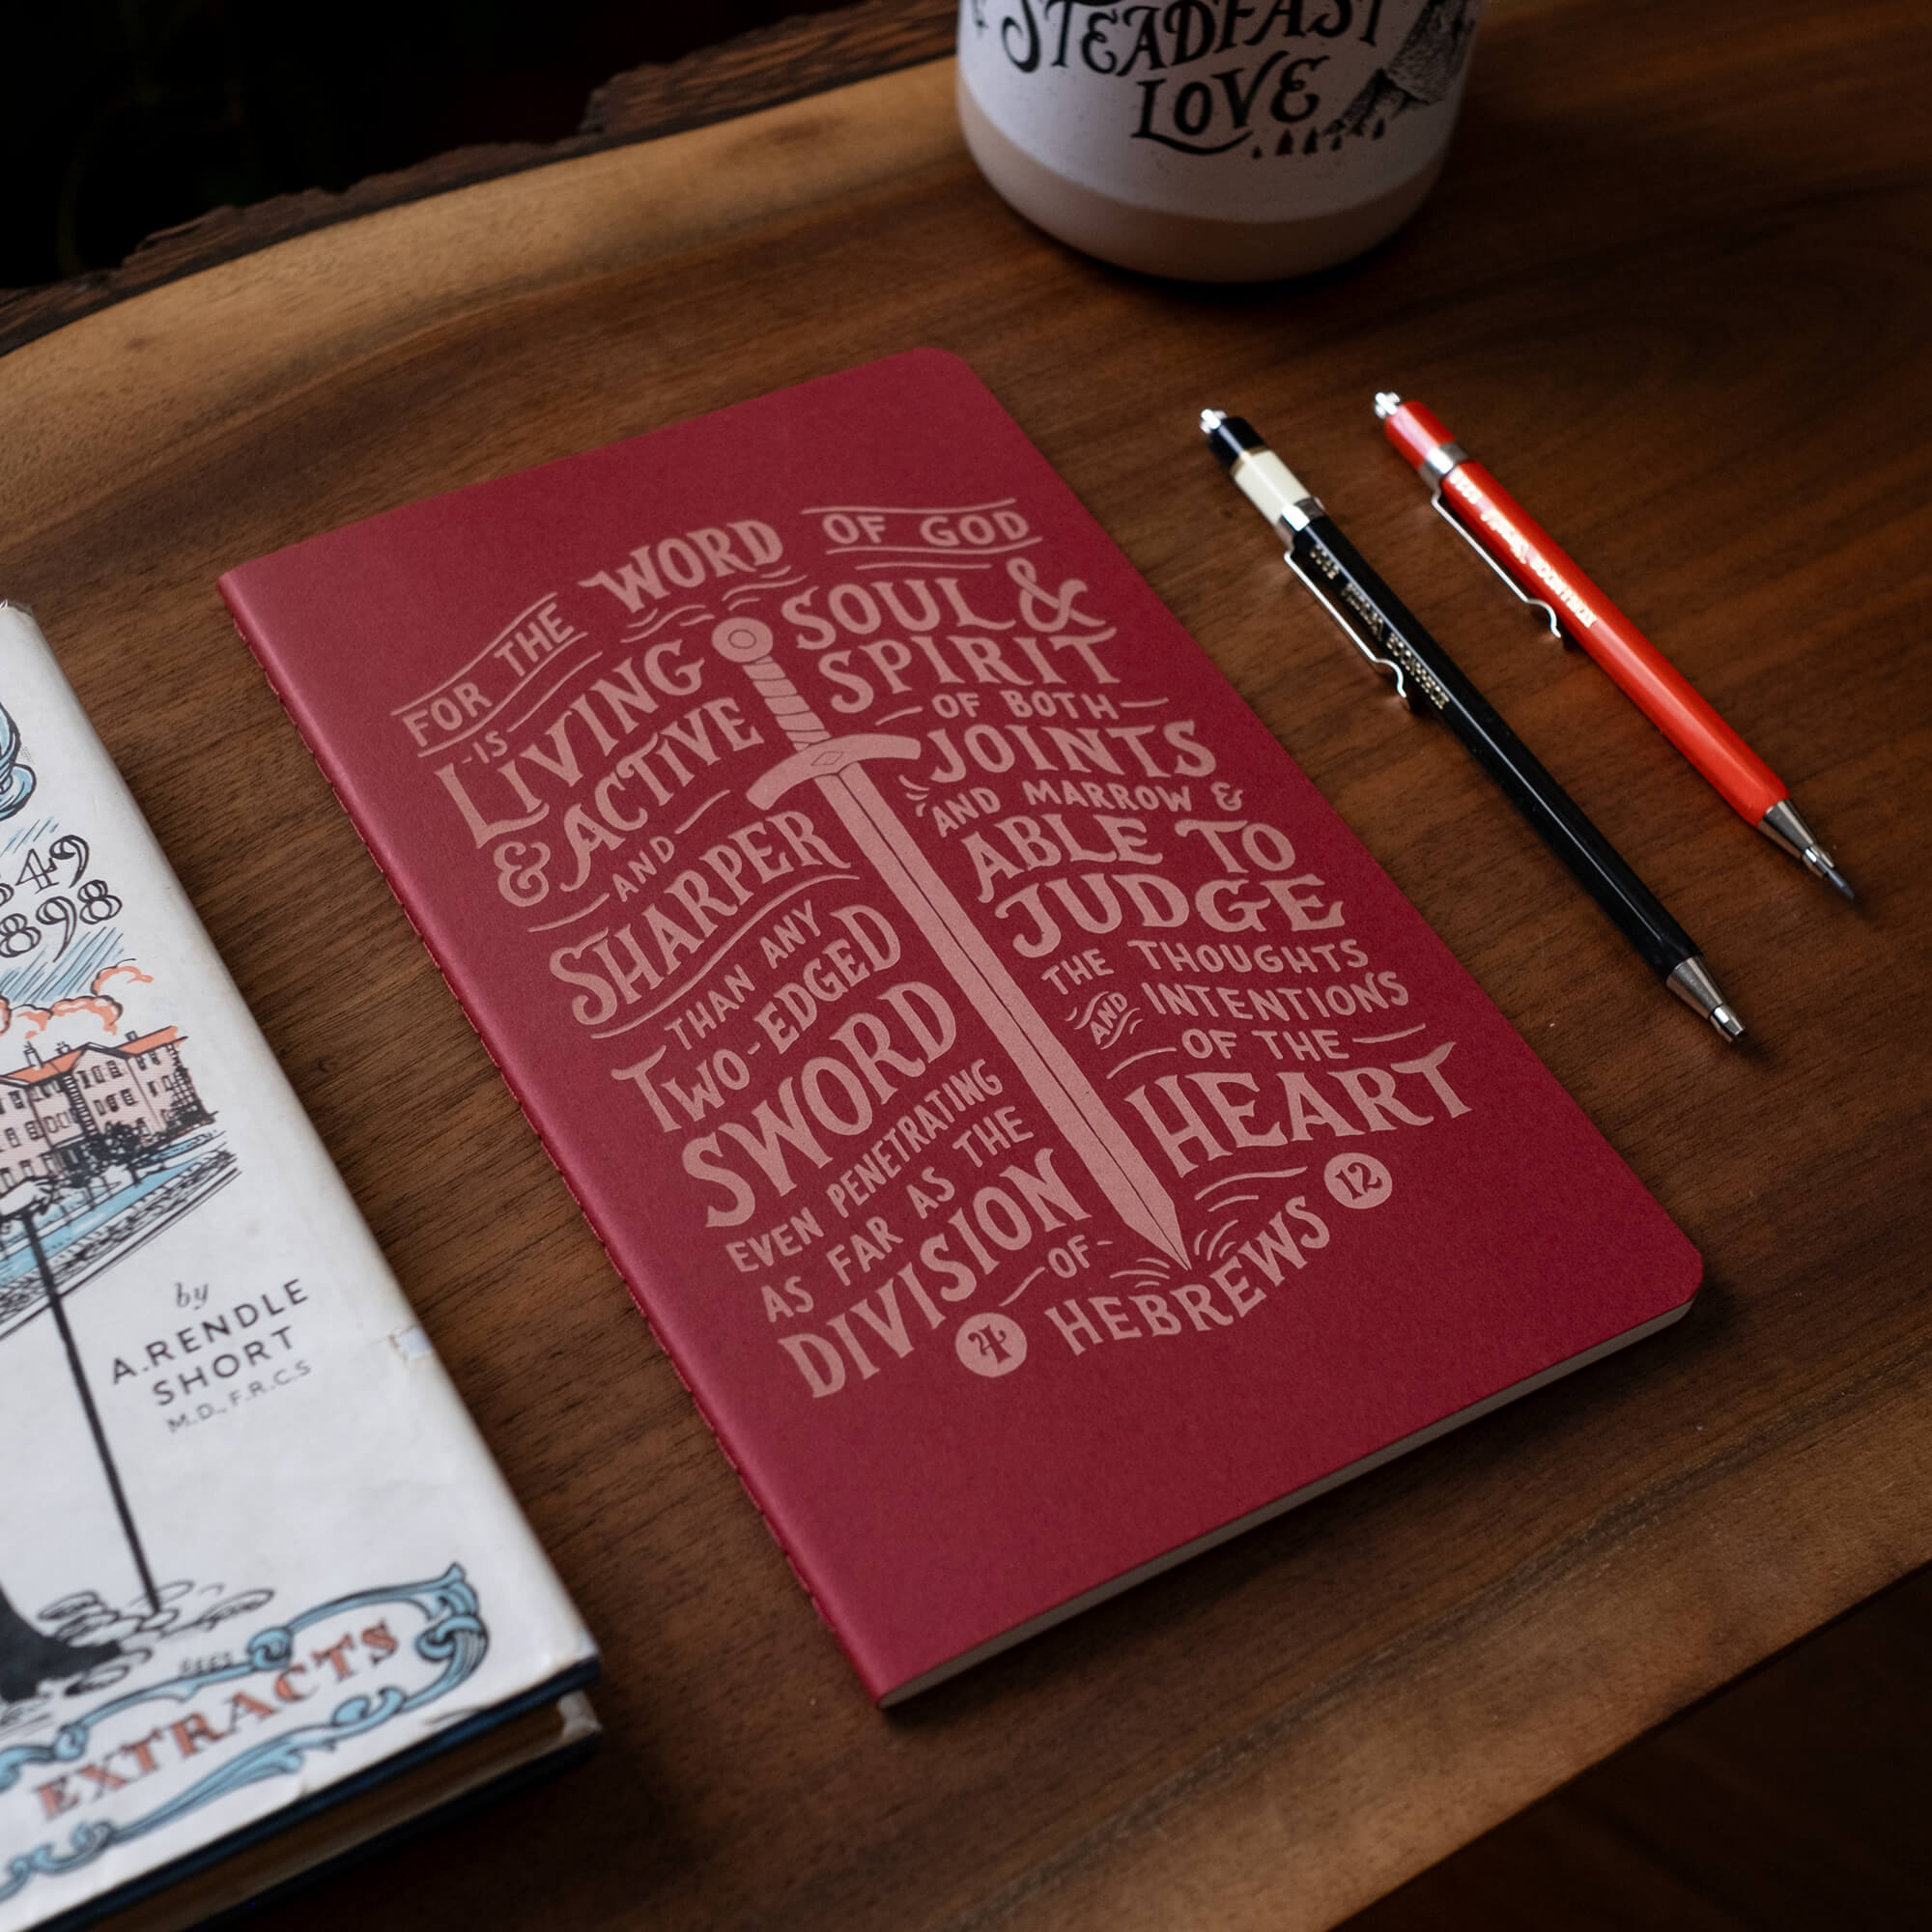 STEADFAST
LOVE
FOR THE WORD OF GOD
-IS-
LIVING
& ACTIVE
AND
SHARPER
THAN ANY
TWO-EDGED
SWORD
EVEN PENETRATING
AS FAR AS THE
DIVISION
OF
SOUL &
SPIRIT
OF BOTH
JOINTS
AND MARROW &
ABLE TO
JUDGE
THE THOUGHTS
AND INTENTIONS
OF THE
HEART
4 HEBREWS 12
49
898
by
A. RENDLE
SHORT
M.D., F.R.C.S
EXTRACTS